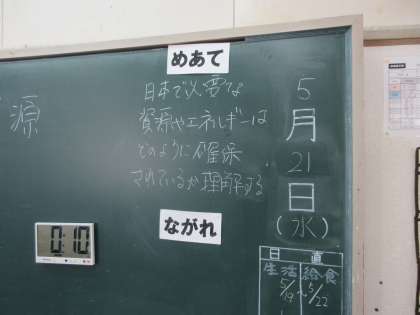 めあて
日本で必要な
資源やエネルギーは
どのように確保
されているか理解する
ながれ
5
月
21
日
(水)
源
0:10
日直
生活 給食
5/19~5/22